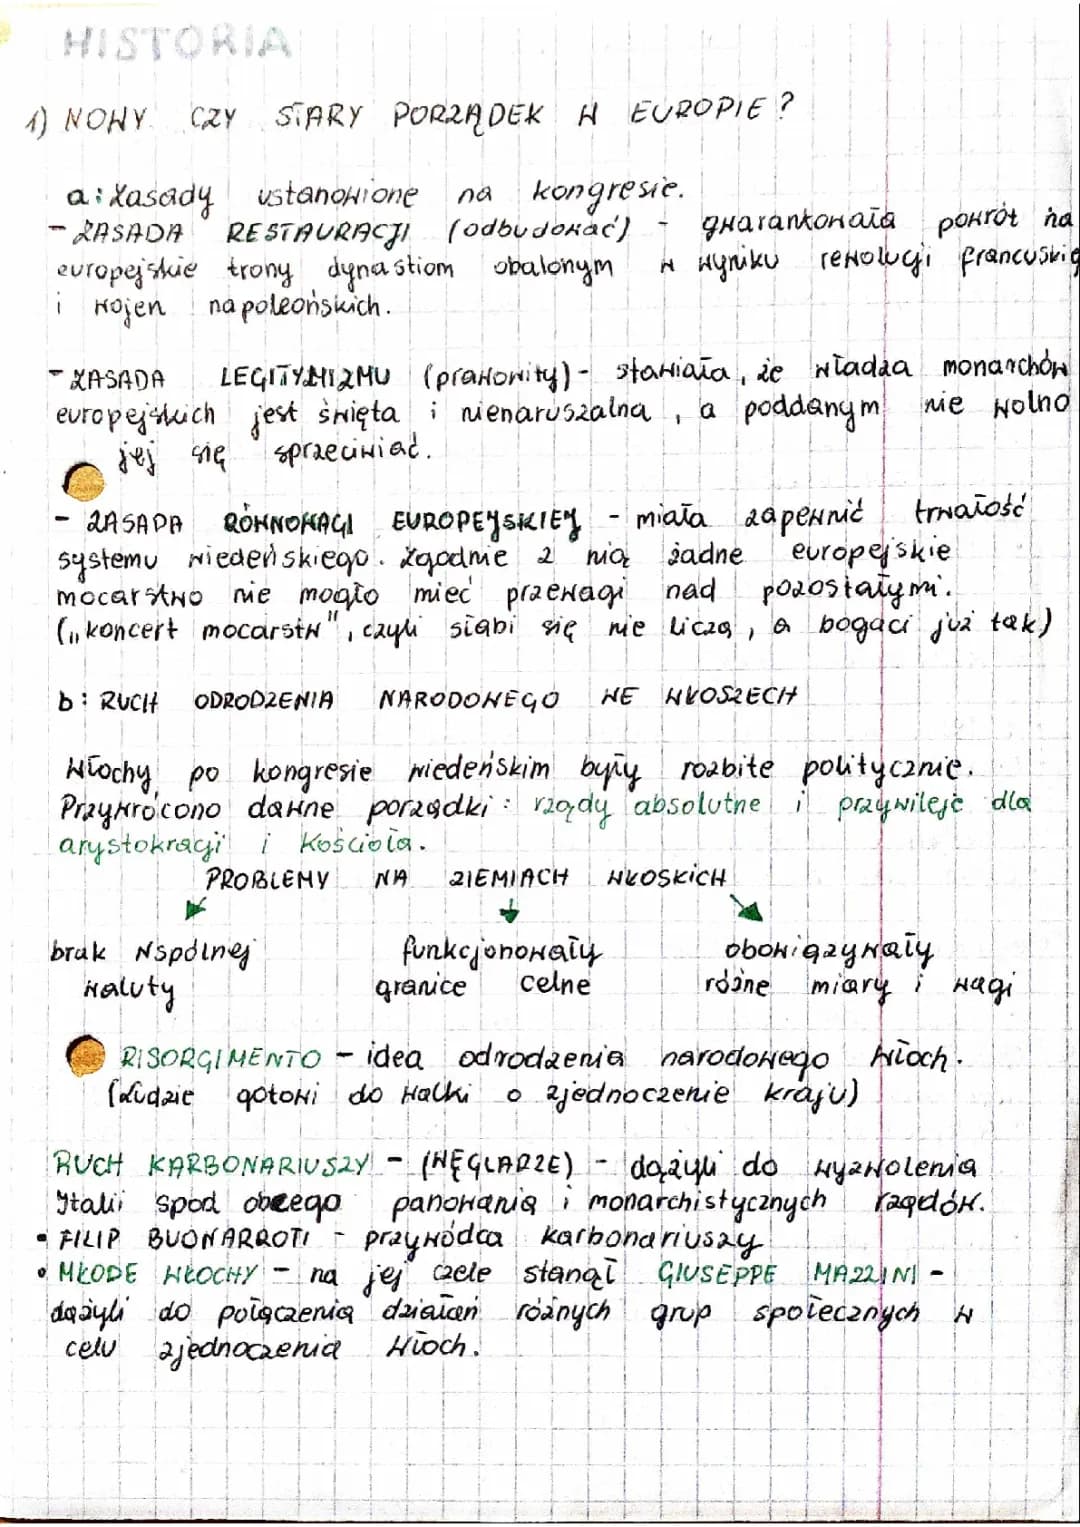 HISTORIA
1) NOWY CZY STARY PORZĄDEK W EUROPIE?
a: Zasady ustanowione na kongresie.
- ZASADA RESTAURACJI (odbudować) - gwarantowała powrót na
europejskie trony dynastiom obalonym w wyniku rewolucji francuskiej
i wojen napoleońskich.
- ZASADA LEGITYMIZMU (prawowity) - stawiała, że władza monarchów
europejskich jest święta i nienaruszalna, a poddanym nie wolno
jej się sprzeciwiać.
- ZASADA RÓWNOWAGI EUROPEJSKIEJ - miała zapewnić trwałość
systemu wiedeńskiego. Zgodnie z nią żadne europejskie
mocarstwo nie mogło mieć przewagi nad pozostałymi.
(„koncert mocarstw", czyli słabi się nie liczą, a bogaci już tak)
b: RUCH ODRODZENIA NARODOWEGO WE WŁOSZECH
Włochy po kongresie wiedeńskim były rozbite politycznie.
Przywrócono dawne porządki: rządy absolutne i przywileje dla
arystokracji i Kościoła.
PROBLEMY NA ZIEMIACH WŁOSKICH
brak wspólnej funkcjonowały obowiązywały
waluty granice celne różne miary i wagi
RISORGIMENTO - idea odrodzenia narodowego Włoch.
(Ludzie gotowi do walki o zjednoczenie kraju)
RUCH KARBONARIUSZY - (WĘGLARZE) - dążyli do wyzwolenia
Italii spod obcego panowania i monarchistycznych rządów.
• FILIP BUONARROTI - przywódca karbonariuszy
• MŁODE WŁOCHY - na jej czele stanął GIUSEPPE MAZZINI -
dążyli do połączenia działań różnych grup społecznych w
celu zjednoczenia Włoch.